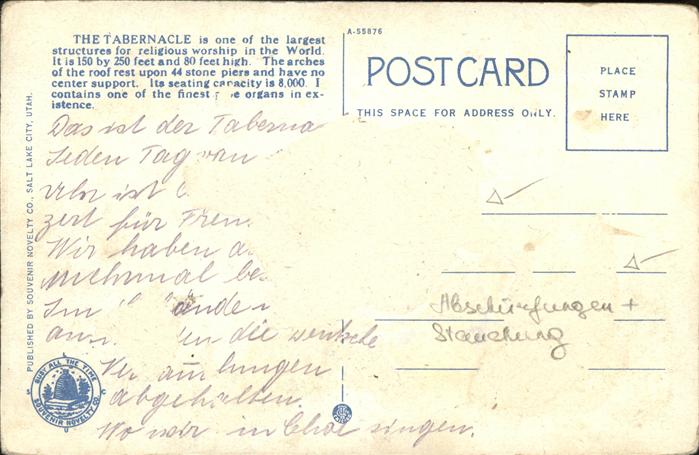 THE TABERNACLE is one of the largest
structures for religious worship in the World.
It is 150 by 250 feet and 80 feet high. The arches
of the roof rest upon 44 stone piers and have no
center support. Its seating capacity is 8,000. I
contains one of the finest organs in ex-
istence.
Das ist der Taberna
Jeden Tag von
Uhr ist
zert für Frem
Wir haben
be
Im änden
in die
Ver lungen
abgehalten.
Wo wir im Chor singen.
PUBLISHED BY SOUVENIR NOVELTY CO., SALT LAKE CITY, UTAH.
BUSY ALL THE TIME
SOUVENIR NOVELTY CO.
S L C U
A-55876
POST CARD
THIS SPACE FOR ADDRESS ONLY.
PLACE
STAMP
HERE
Abschürfungen +
Stauchung